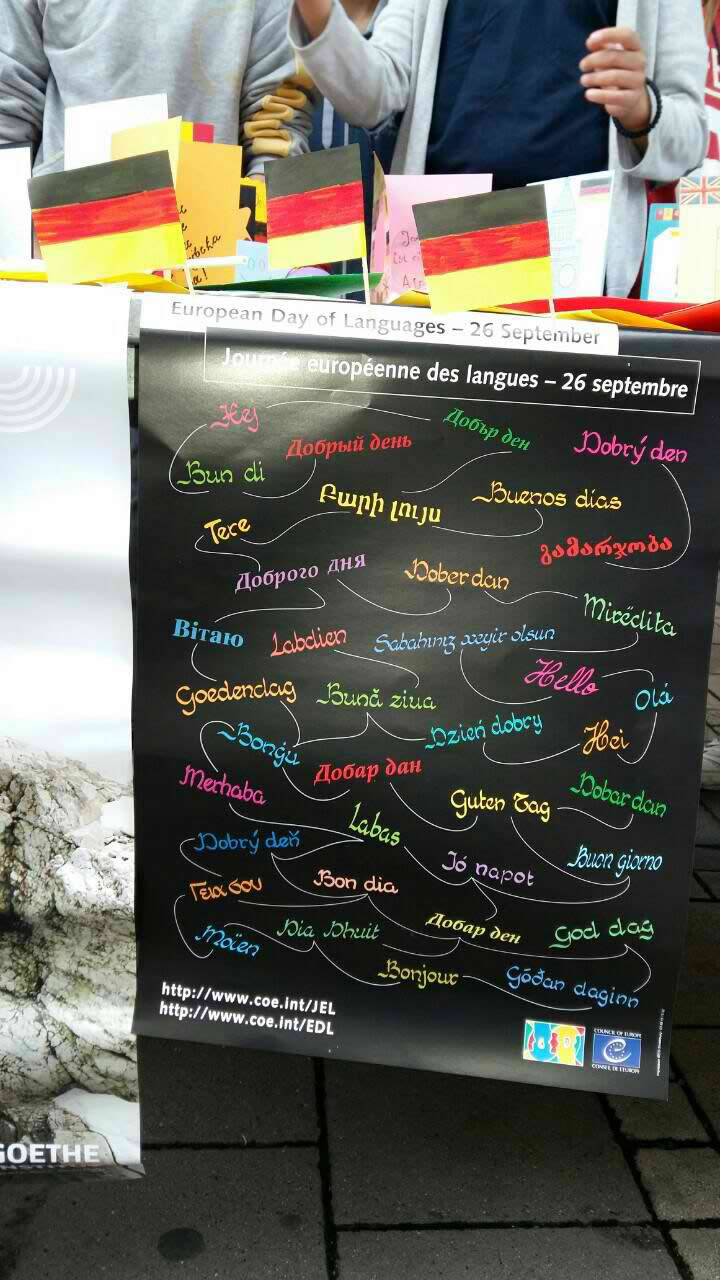 European Day of Languages – 26 September
Journée européenne des langues – 26 septembre
Hej
Добър ден
Добрый день
Dobrý den
Bun di
Բարի լույս
Buenos días
Tere
გამარჯობა
Доброго дня
Dober dan
Mirëdita
Вiтаю
Labdien
Sabahınız xeyir olsun
Hello
Olá
Goedendag
Bună ziua
Dzień dobry
Hei
Bonġu
Добар дан
Merhaba
Guten Tag
Dobar dan
Labas
Dobrý deň
Jó napot
Buon giorno
Γεια σου
Bon dia
Dia Dhuit
Добар ден
God dag
Moïen
Bonjour
Góðan daginn
http://www.coe.int/JEL
http://www.coe.int/EDL
COUNCIL OF EUROPE
CONSEIL DE L'EUROPE
GOETHE